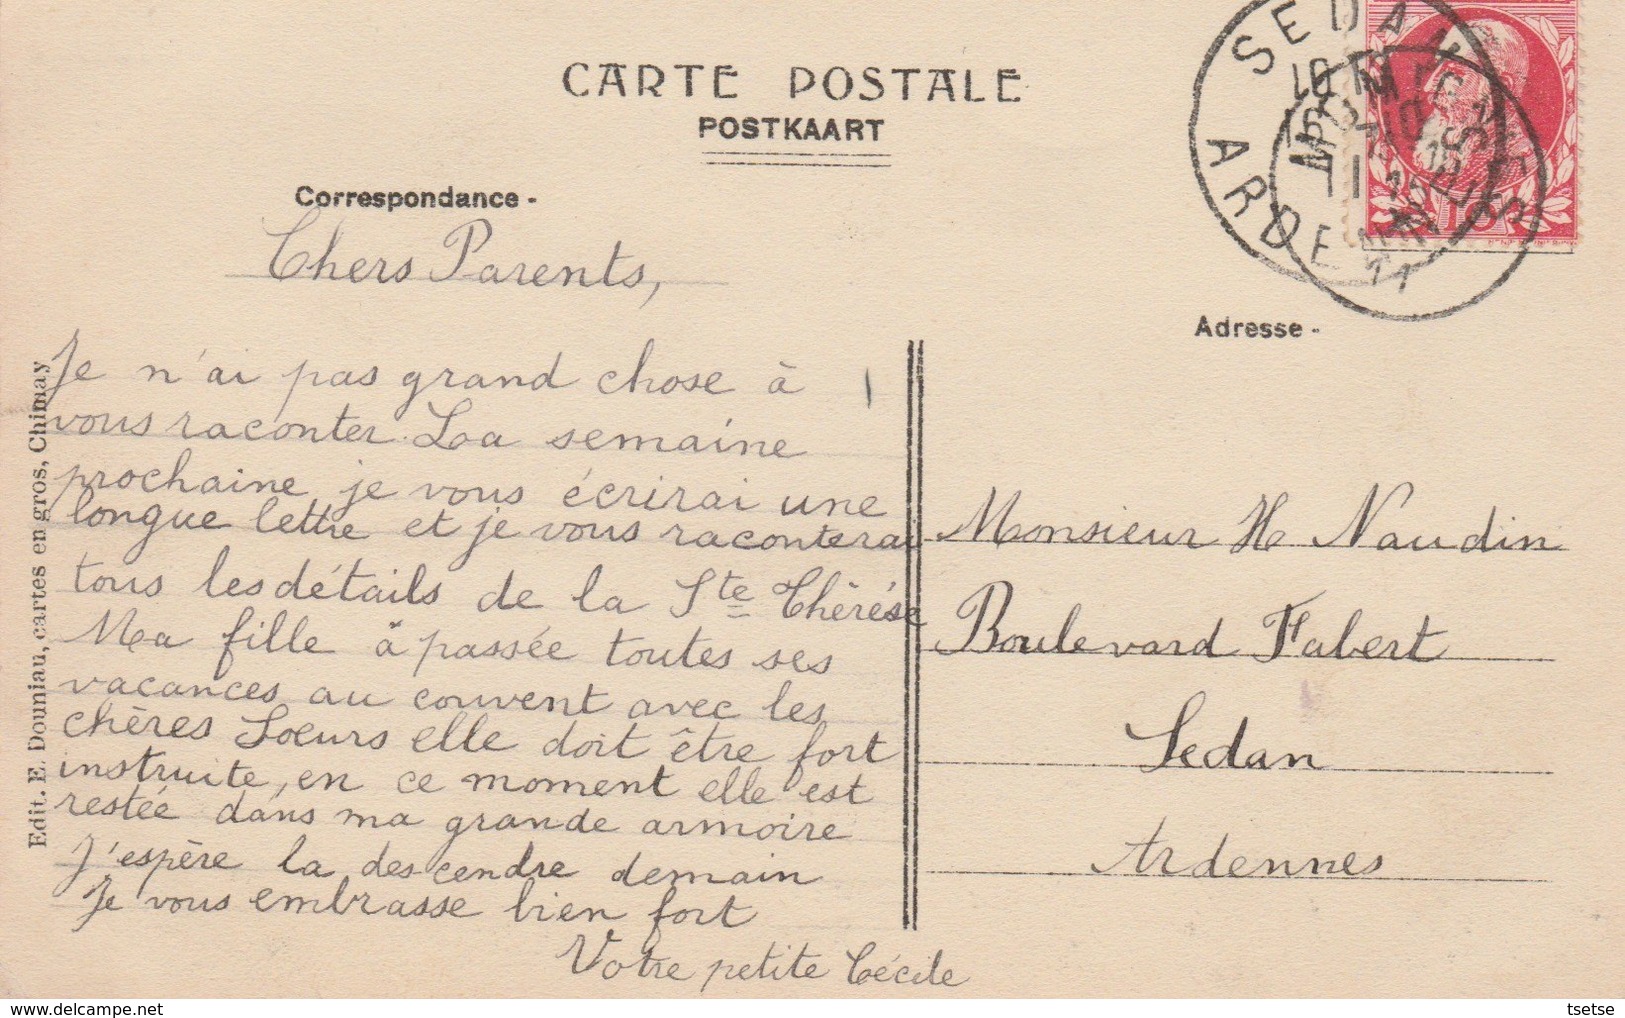 CARTE POSTALE
POSTKAART
Correspondance -
Chers Parents,
Je n'ai pas grand chose à
vous raconter. La semaine
prochaine je vous écrirai une
longue lettre et je vous raconterai
tous les détails de la Ste Thérèse
Ma fille à passée toutes ses
vacances au couvent avec les
chères Soeurs elle doit être fort
instruite, en ce moment elle est
restée dans ma grande armoire
J'espère la descendre demain
Je vous embrasse bien fort
Votre petite Cécile
Edit. E. Douniau, cartes en gros, Chimay
SEDAN
ARDENNES
10
11
Adresse -
Monsieur H Naudin
Boulevard Fabert
Sedan
Ardennes
tsetse